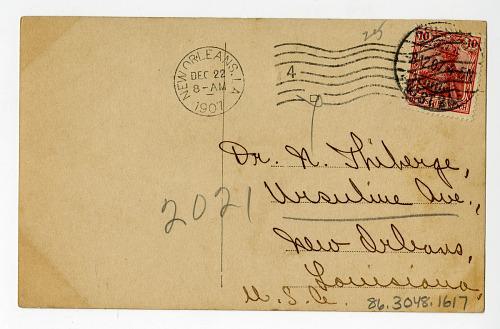 NEW ORLEANS, LA
DEC 22
8-AM
1907
4
25
10 10
Dr. N. Thiberge,
Ursuline Ave.,
New Orleans,
Louisiana,
U. S. A.
2021
86.3048.1617